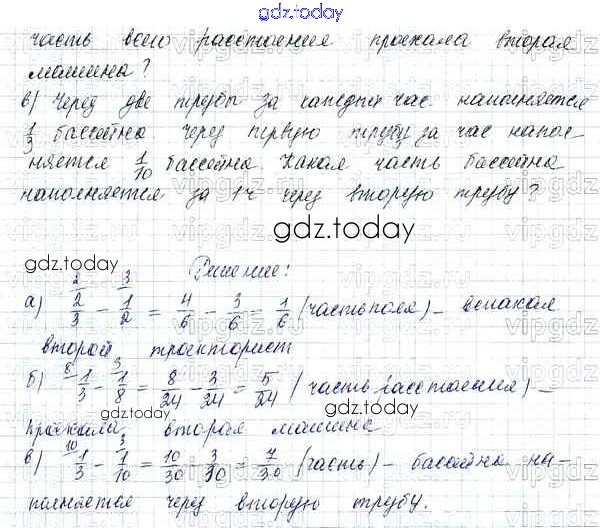 gdz.today
часть всего расстояния проехала вторая
машина?
в) Через две трубы за каждый час наполняется
1/3 бассейна через первую трубу за час напол-
няется 1/10 бассейна. Какая часть бассейна
наполняется за 1ч через вторую трубу?
gdz.today
gdz.today
Решение:
а) 2/3 - 1/2 = 4/6 - 3/6 = 1/6 (часть поля) - вспахал
второй тракторист
б) 1/3 - 1/8 = 8/24 - 3/24 = 5/24 (часть расстояния) -
gdz.today
проехала вторая машина
в) 1/3 - 1/10 = 10/30 - 3/30 = 7/30 (часть) - бассейна на-
полняется через вторую трубу.